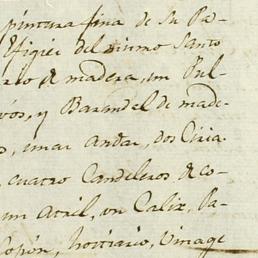 pintura fina de su Pa-
Efigie del mismo Santo
de madera, un Pul-
y Barandel de made-
unas Andas, dos Ciria-
, cuatro Candeleros de co-
un Atril, un Caliz, Pa-
Copón, hostiario, Vinage